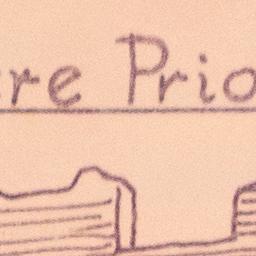 re Prio